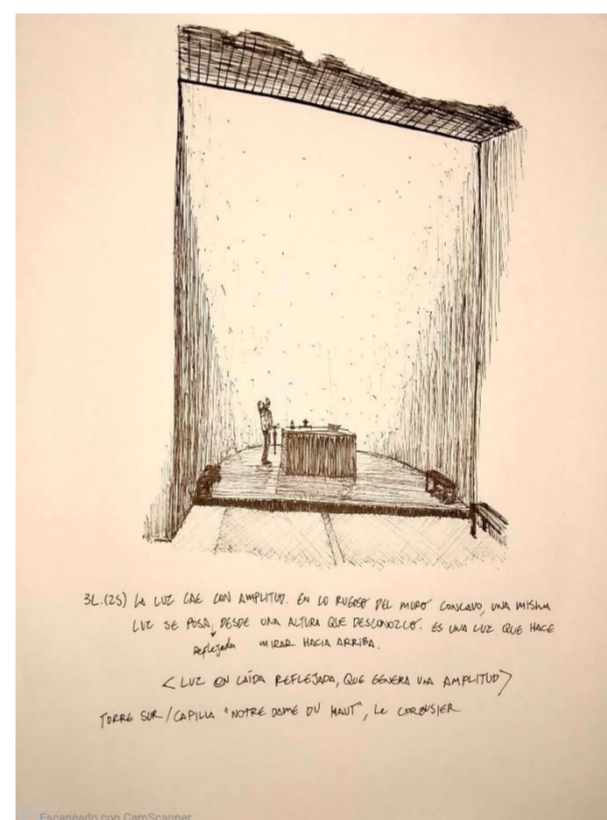 3L.(2S) LA LUZ CAE CON AMPLITUD. EN LO RUGOSO DEL MURO CONCAVO, UNA MISMA
LUZ SE POSA, DESDE UNA ALTURA QUE DESCONOZCO. ES UNA LUZ QUE HACE
reflejada MIRAR HACIA ARRIBA.
< LUZ EN CAÍDA REFLEJADA, QUE GENERA UNA AMPLITUD >
TORRE SUR / CAPILLA "NOTRE DAME DU HAUT", Le CORBUSIER
Escaneado con CamScanner